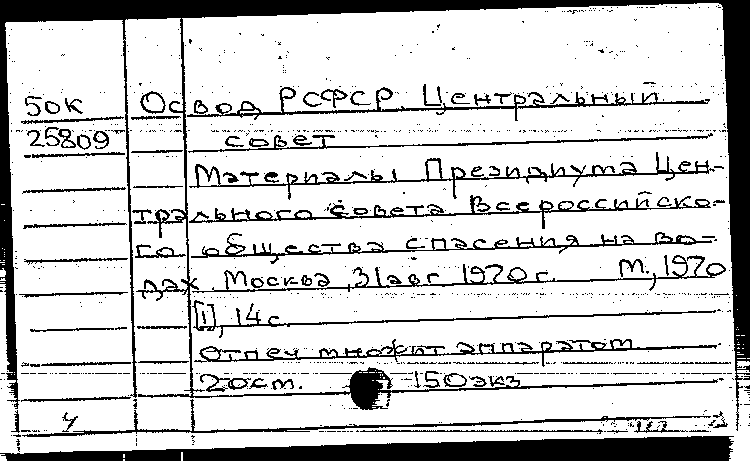 50К Освод РСФСР. Центральный
25809 совет
Материалы Президиума Цен-
трального совета Всероссийско-
го общества спасения на во-
дах. Москва, 31 авг 1970 г. М., 1970
[1], 14 с.
Отпеч множит аппаратом
20 см. 150 экз
4